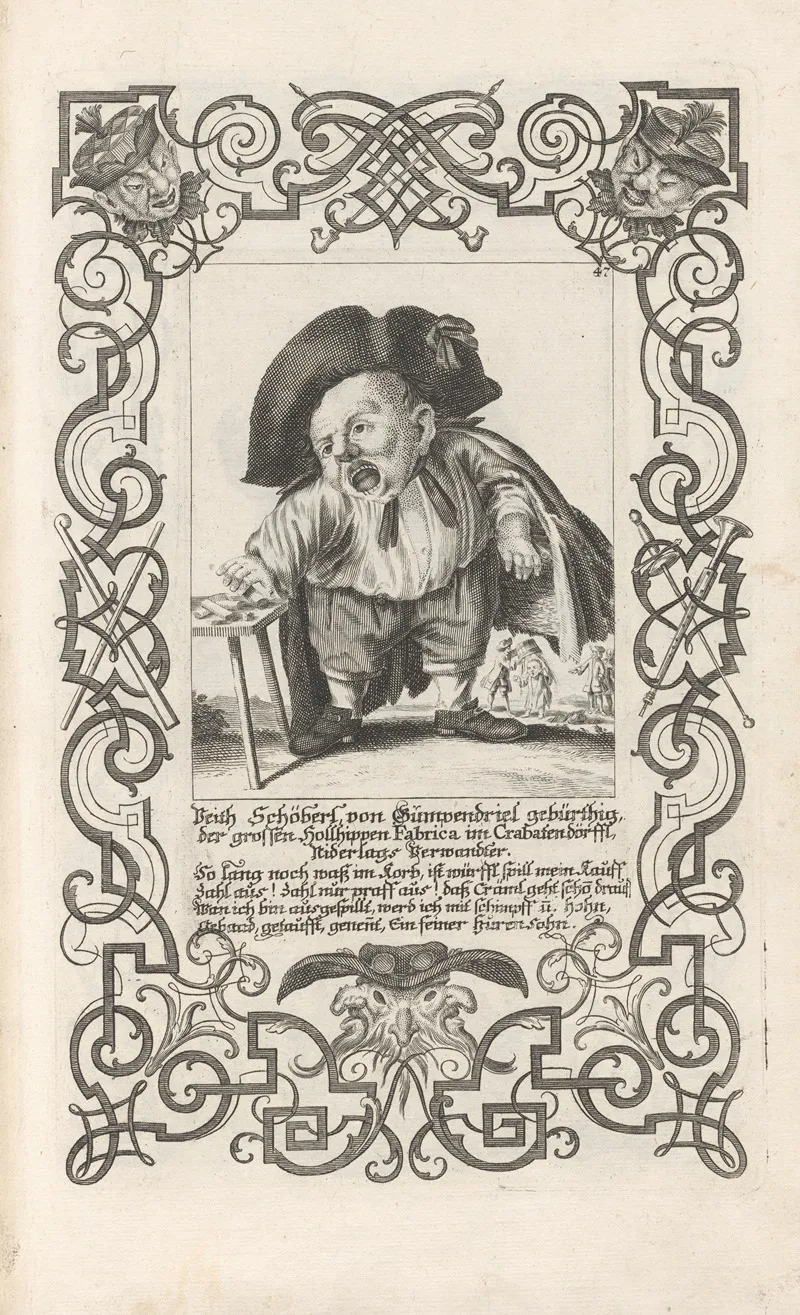 47
Veith Schöberl, von Gümpendriel gebürthig,
der grossen Hollhippen Fabrica im Crabaten dörffl,
Niderlags Verwandter.
So lang noch waß im Korb, ist würffl spill mein Kauff
Zahl aus! Zahl nur praff aus! daß Craml geht schō drauff
Wan ich bin ausgespillt, werd ich mit schimpff ū. Hohn,
gebaad, getaufft, geneñt, Ein feiner Huren Sohn.